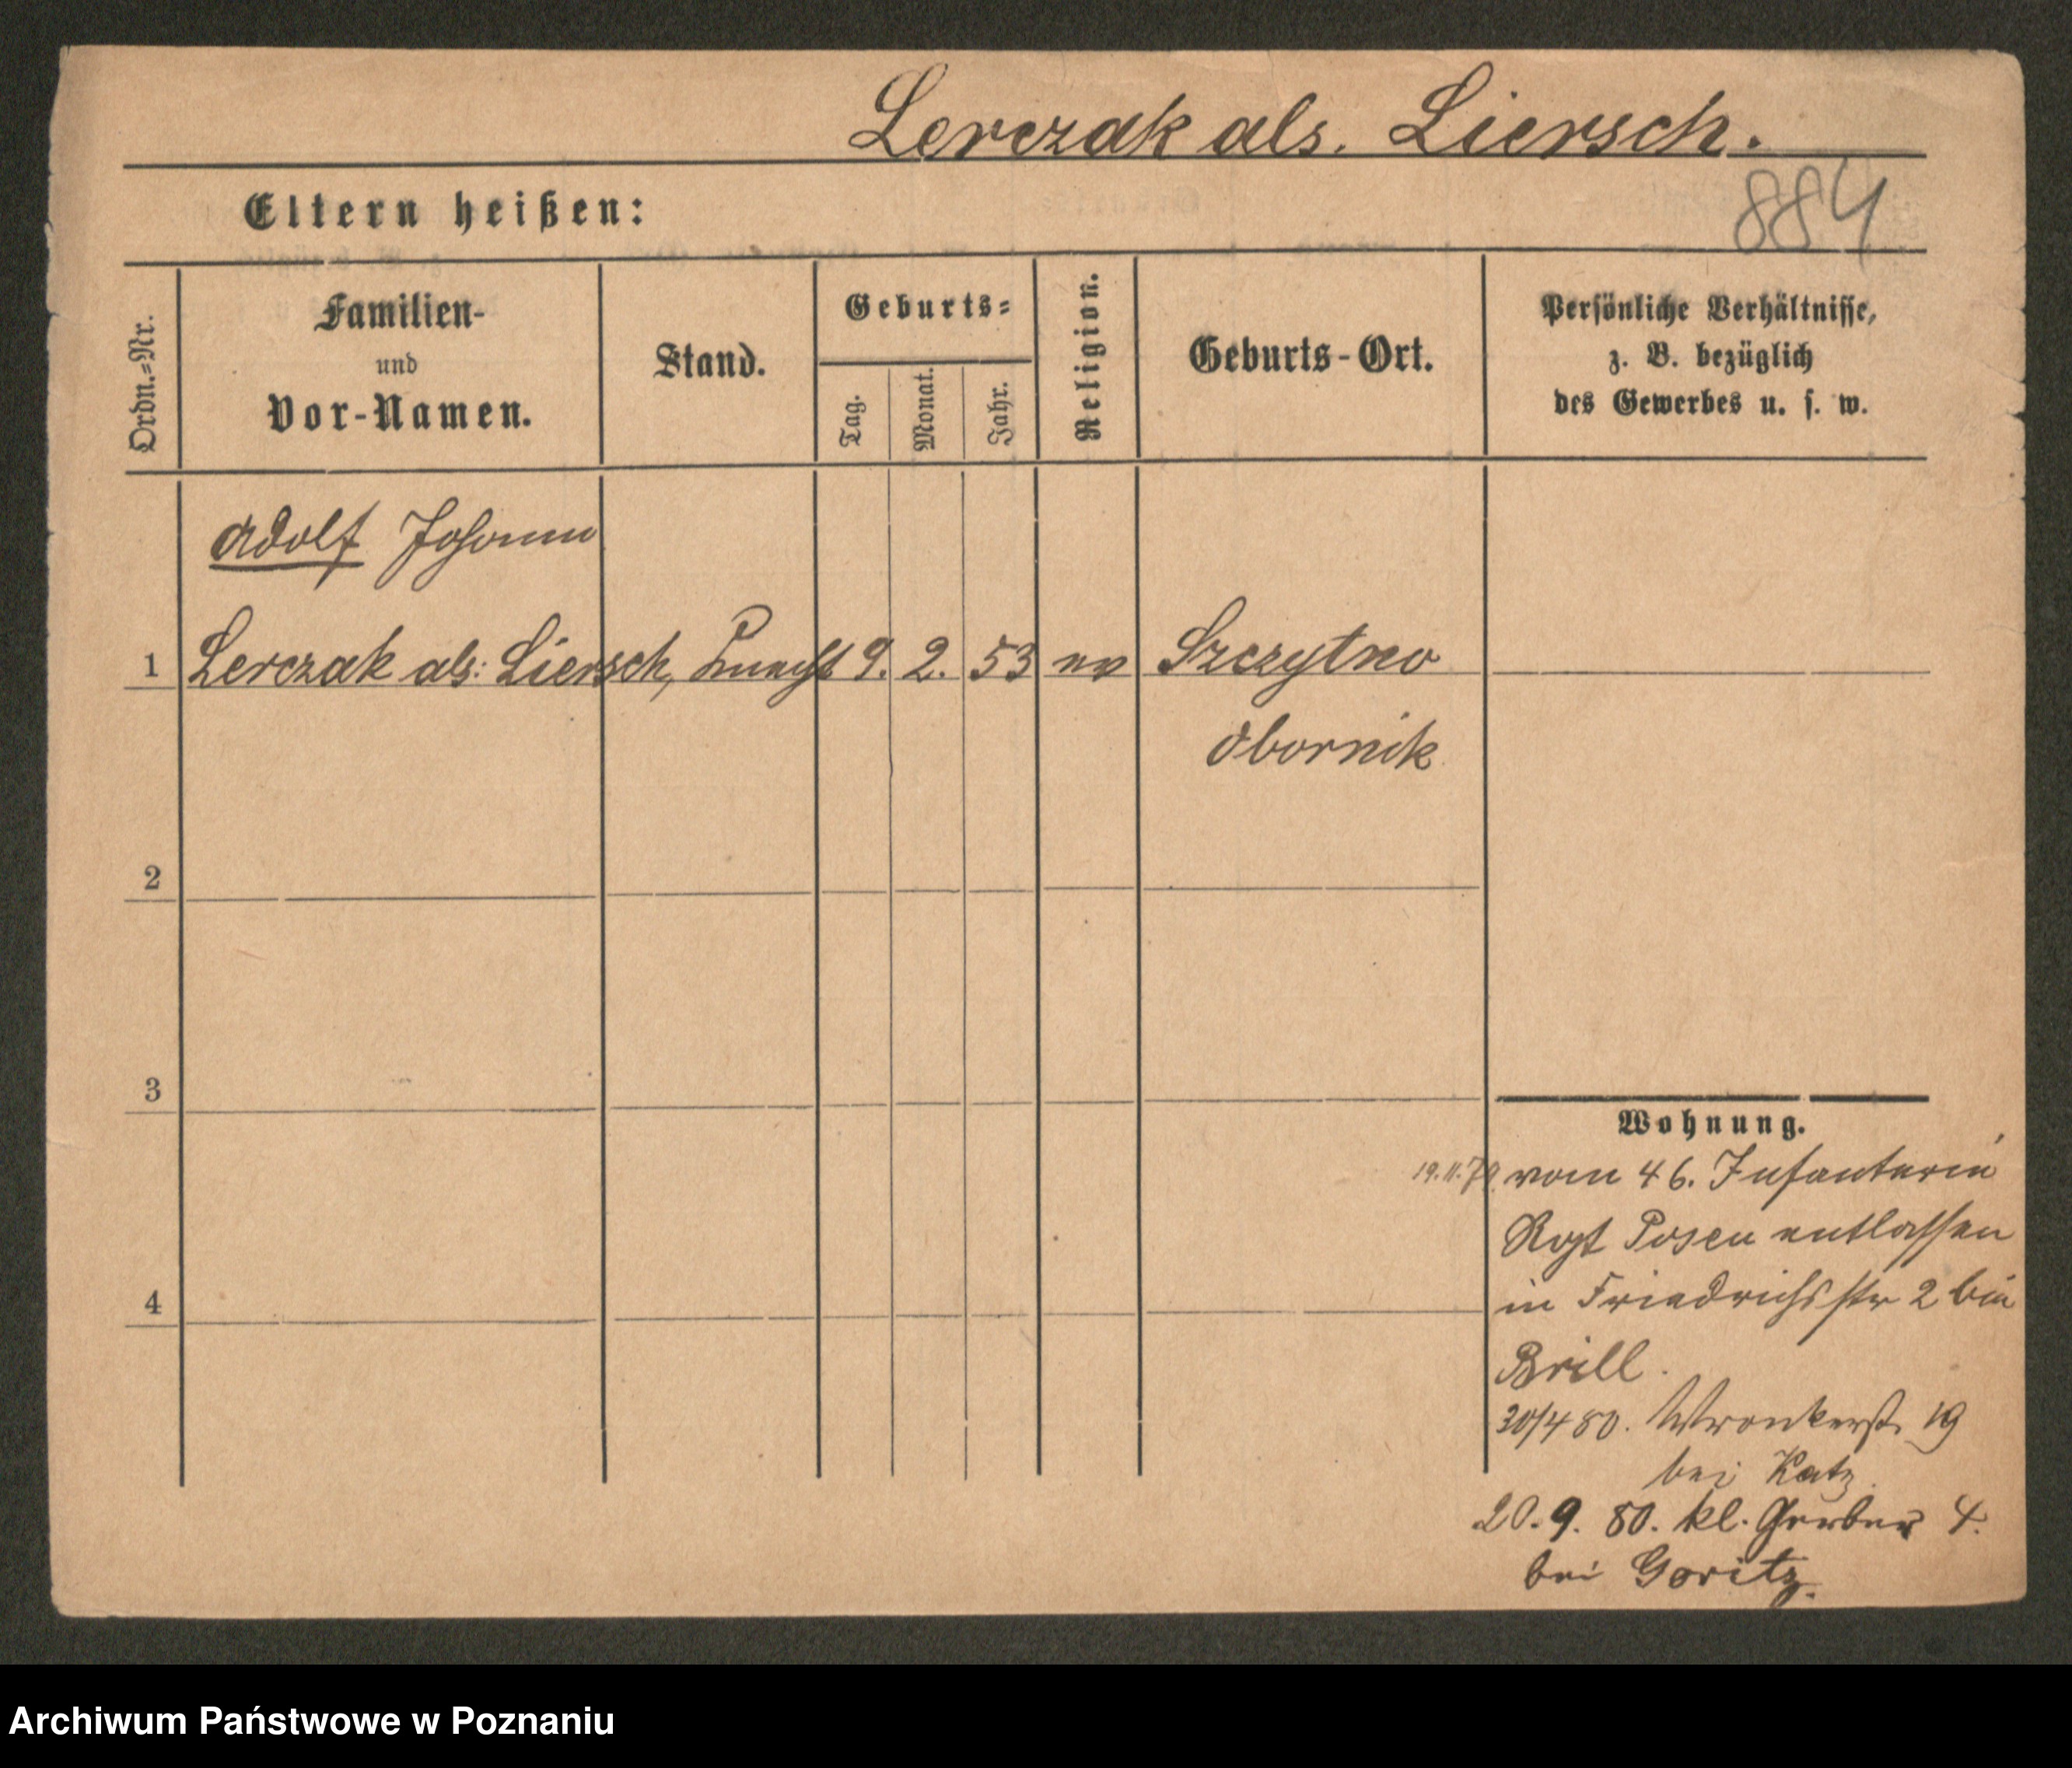 Lerczak als. Liersch.
884
Eltern heißen:
Ordn.=Nr.
Familien-
und
Vor-Namen.
Stand.
Geburts=
Tag.
Monat.
Jahr.
Religion.
Geburts-Ort.
Persönliche Verhältnisse,
z. B. bezüglich
des Gewerbes u. s. w.
Adolf Johann
1 Lerczak als: Liersch, Knecht 9. 2. 53 ev Szczytno
Obornik
2
3
4
Wohnung.
19.11.79. vom 46. Infanterie
Regt Posen entlassen
in Friedrichsstr 2 bei
Brill.
30/4 80. Wronkerstr. 19
bei Katz.
20. 9. 80. kl. Gerber 4.
bei Goritz.
Archiwum Państwowe w Poznaniu